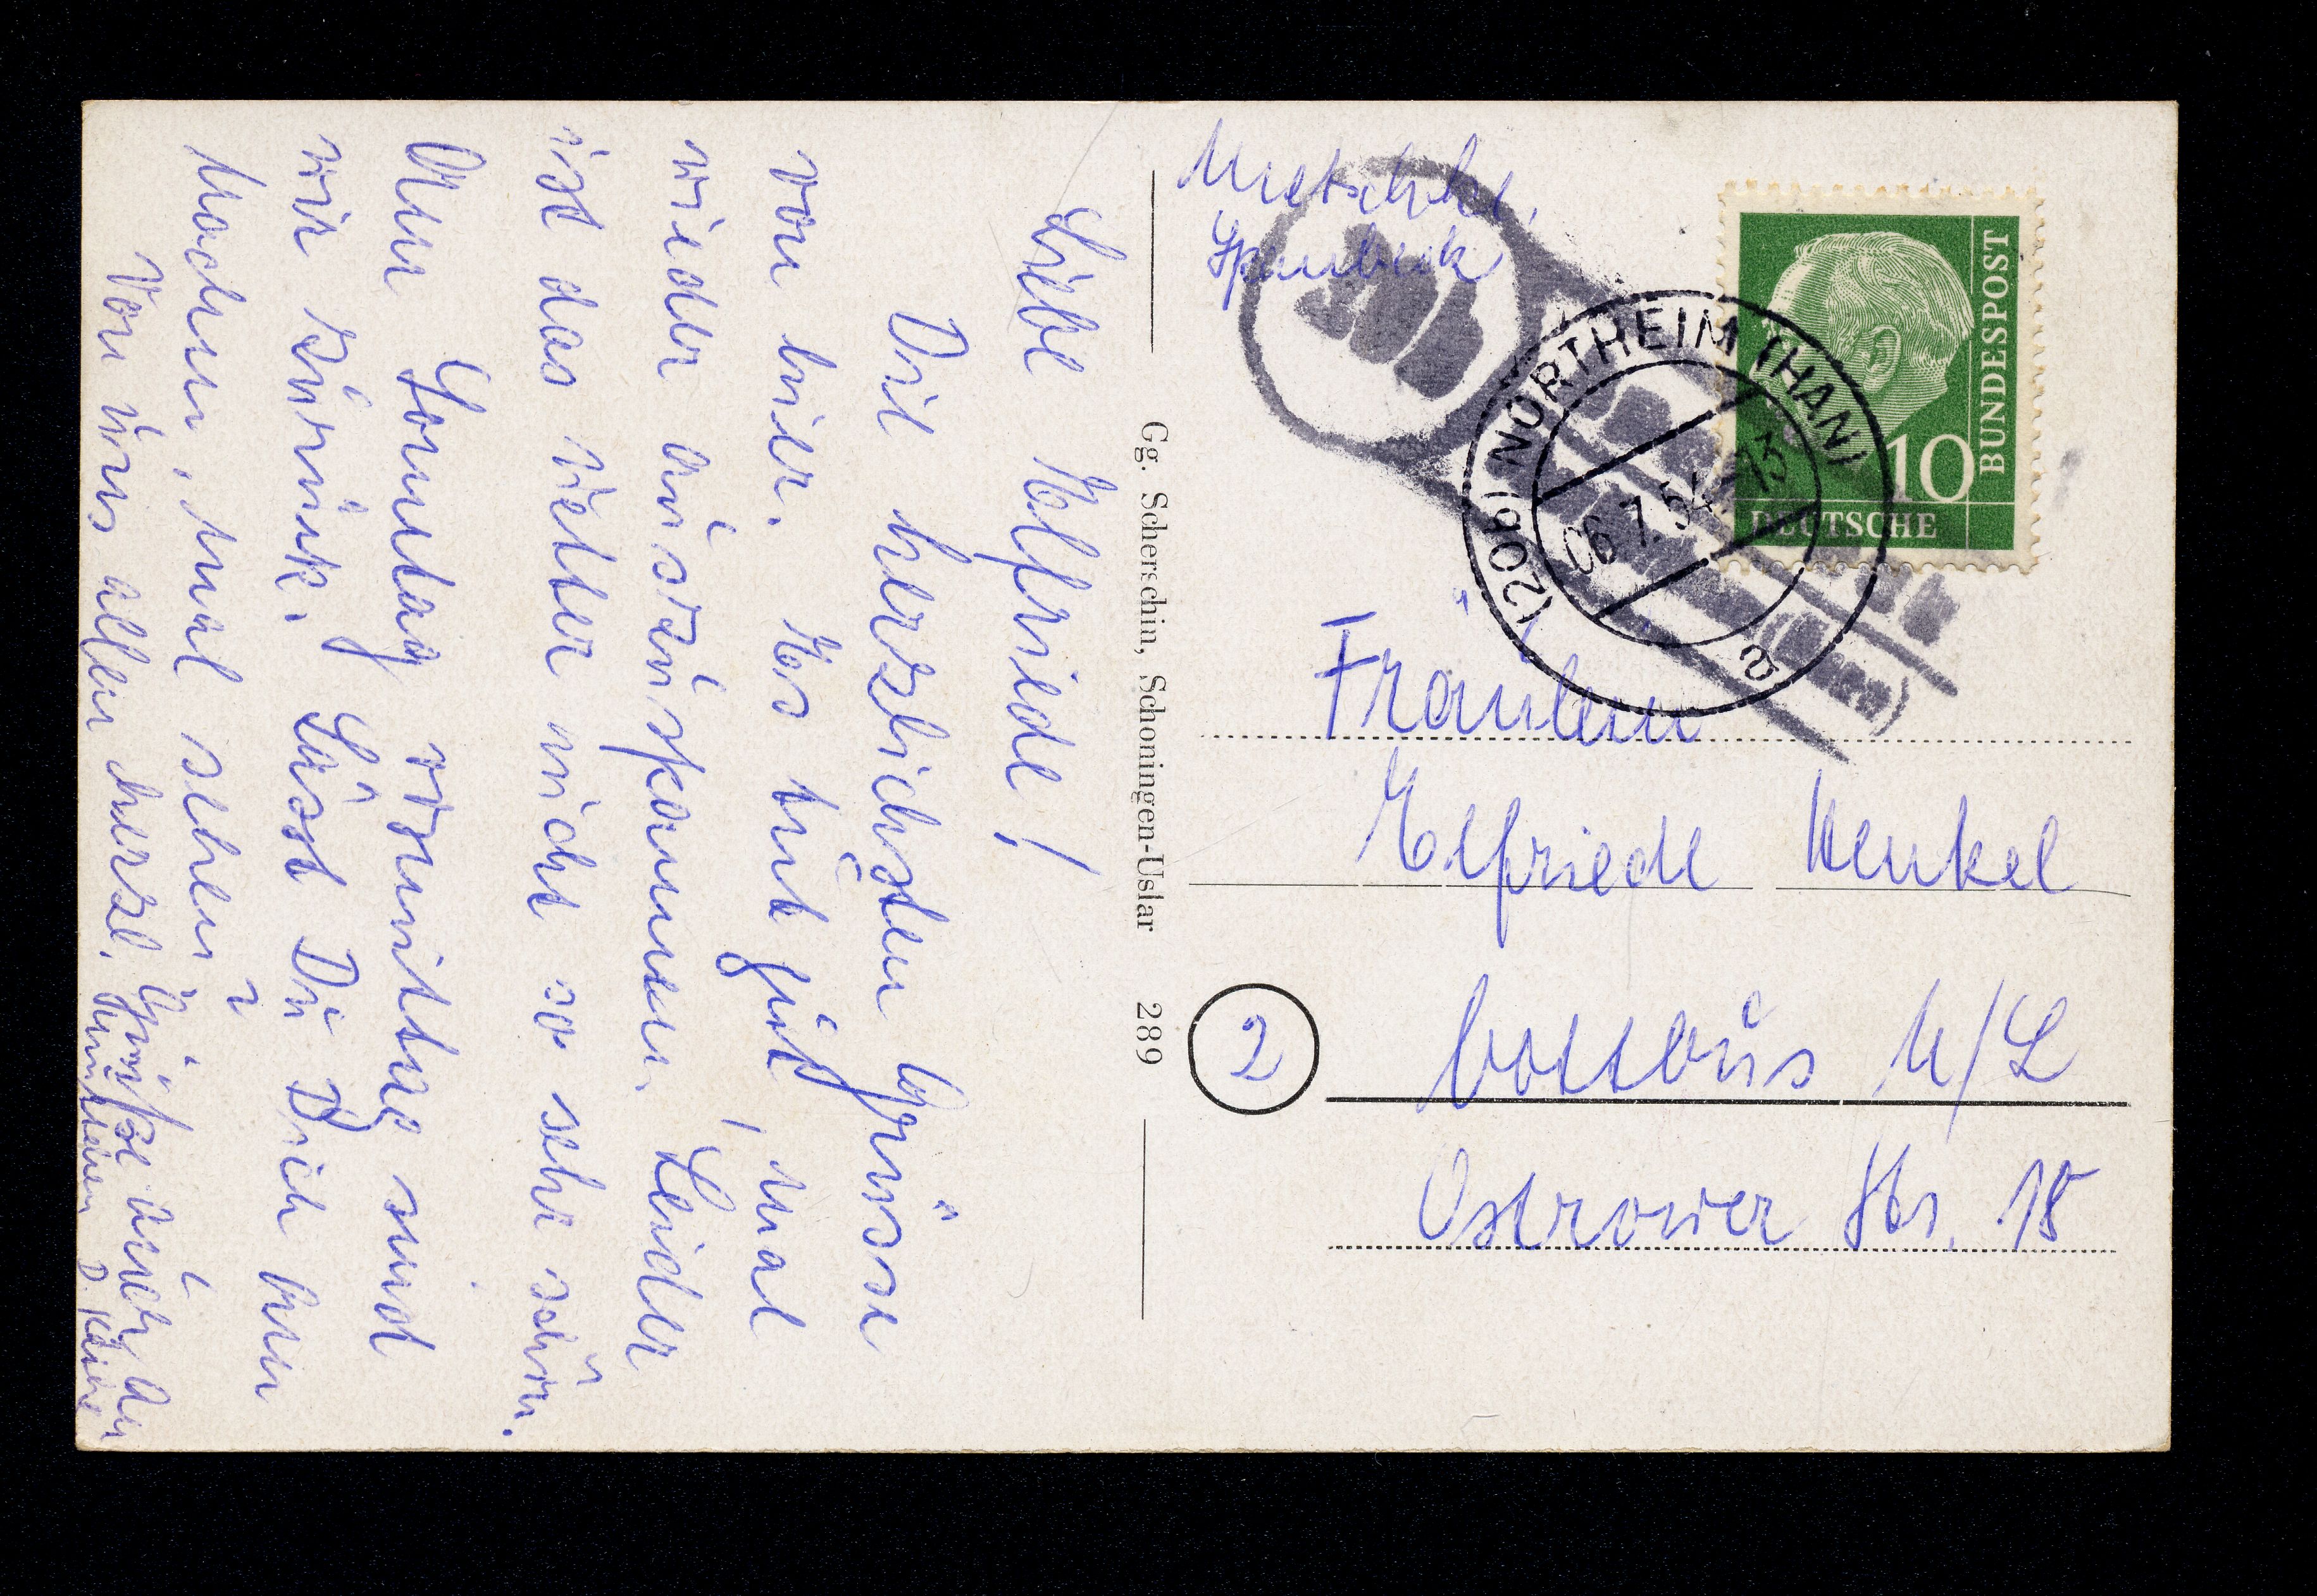 Liebe Elfriede!
Die herzlichsten Grüsse
von hier. Es tut gut, mal
wieder auszuspannen. Leider
ist das Wetter nicht so sehr schön.
Am Sonntag vormittag sind
wir zurück. Lässt Du Dich kun
Wochen, mal sehen?
Von uns allen herzl. Grüsse auch an
D.
Gg. Scherschin, Schoningen-Uslar 289
Spanbeck
(20b) NORTHEIM (HAN)
06.7.54.-13
a
DEUTSCHE
BUNDESPOST
10
Fräulein
Elfriede Henkel
2
Cottbus N/L
Ostrower Str. 15